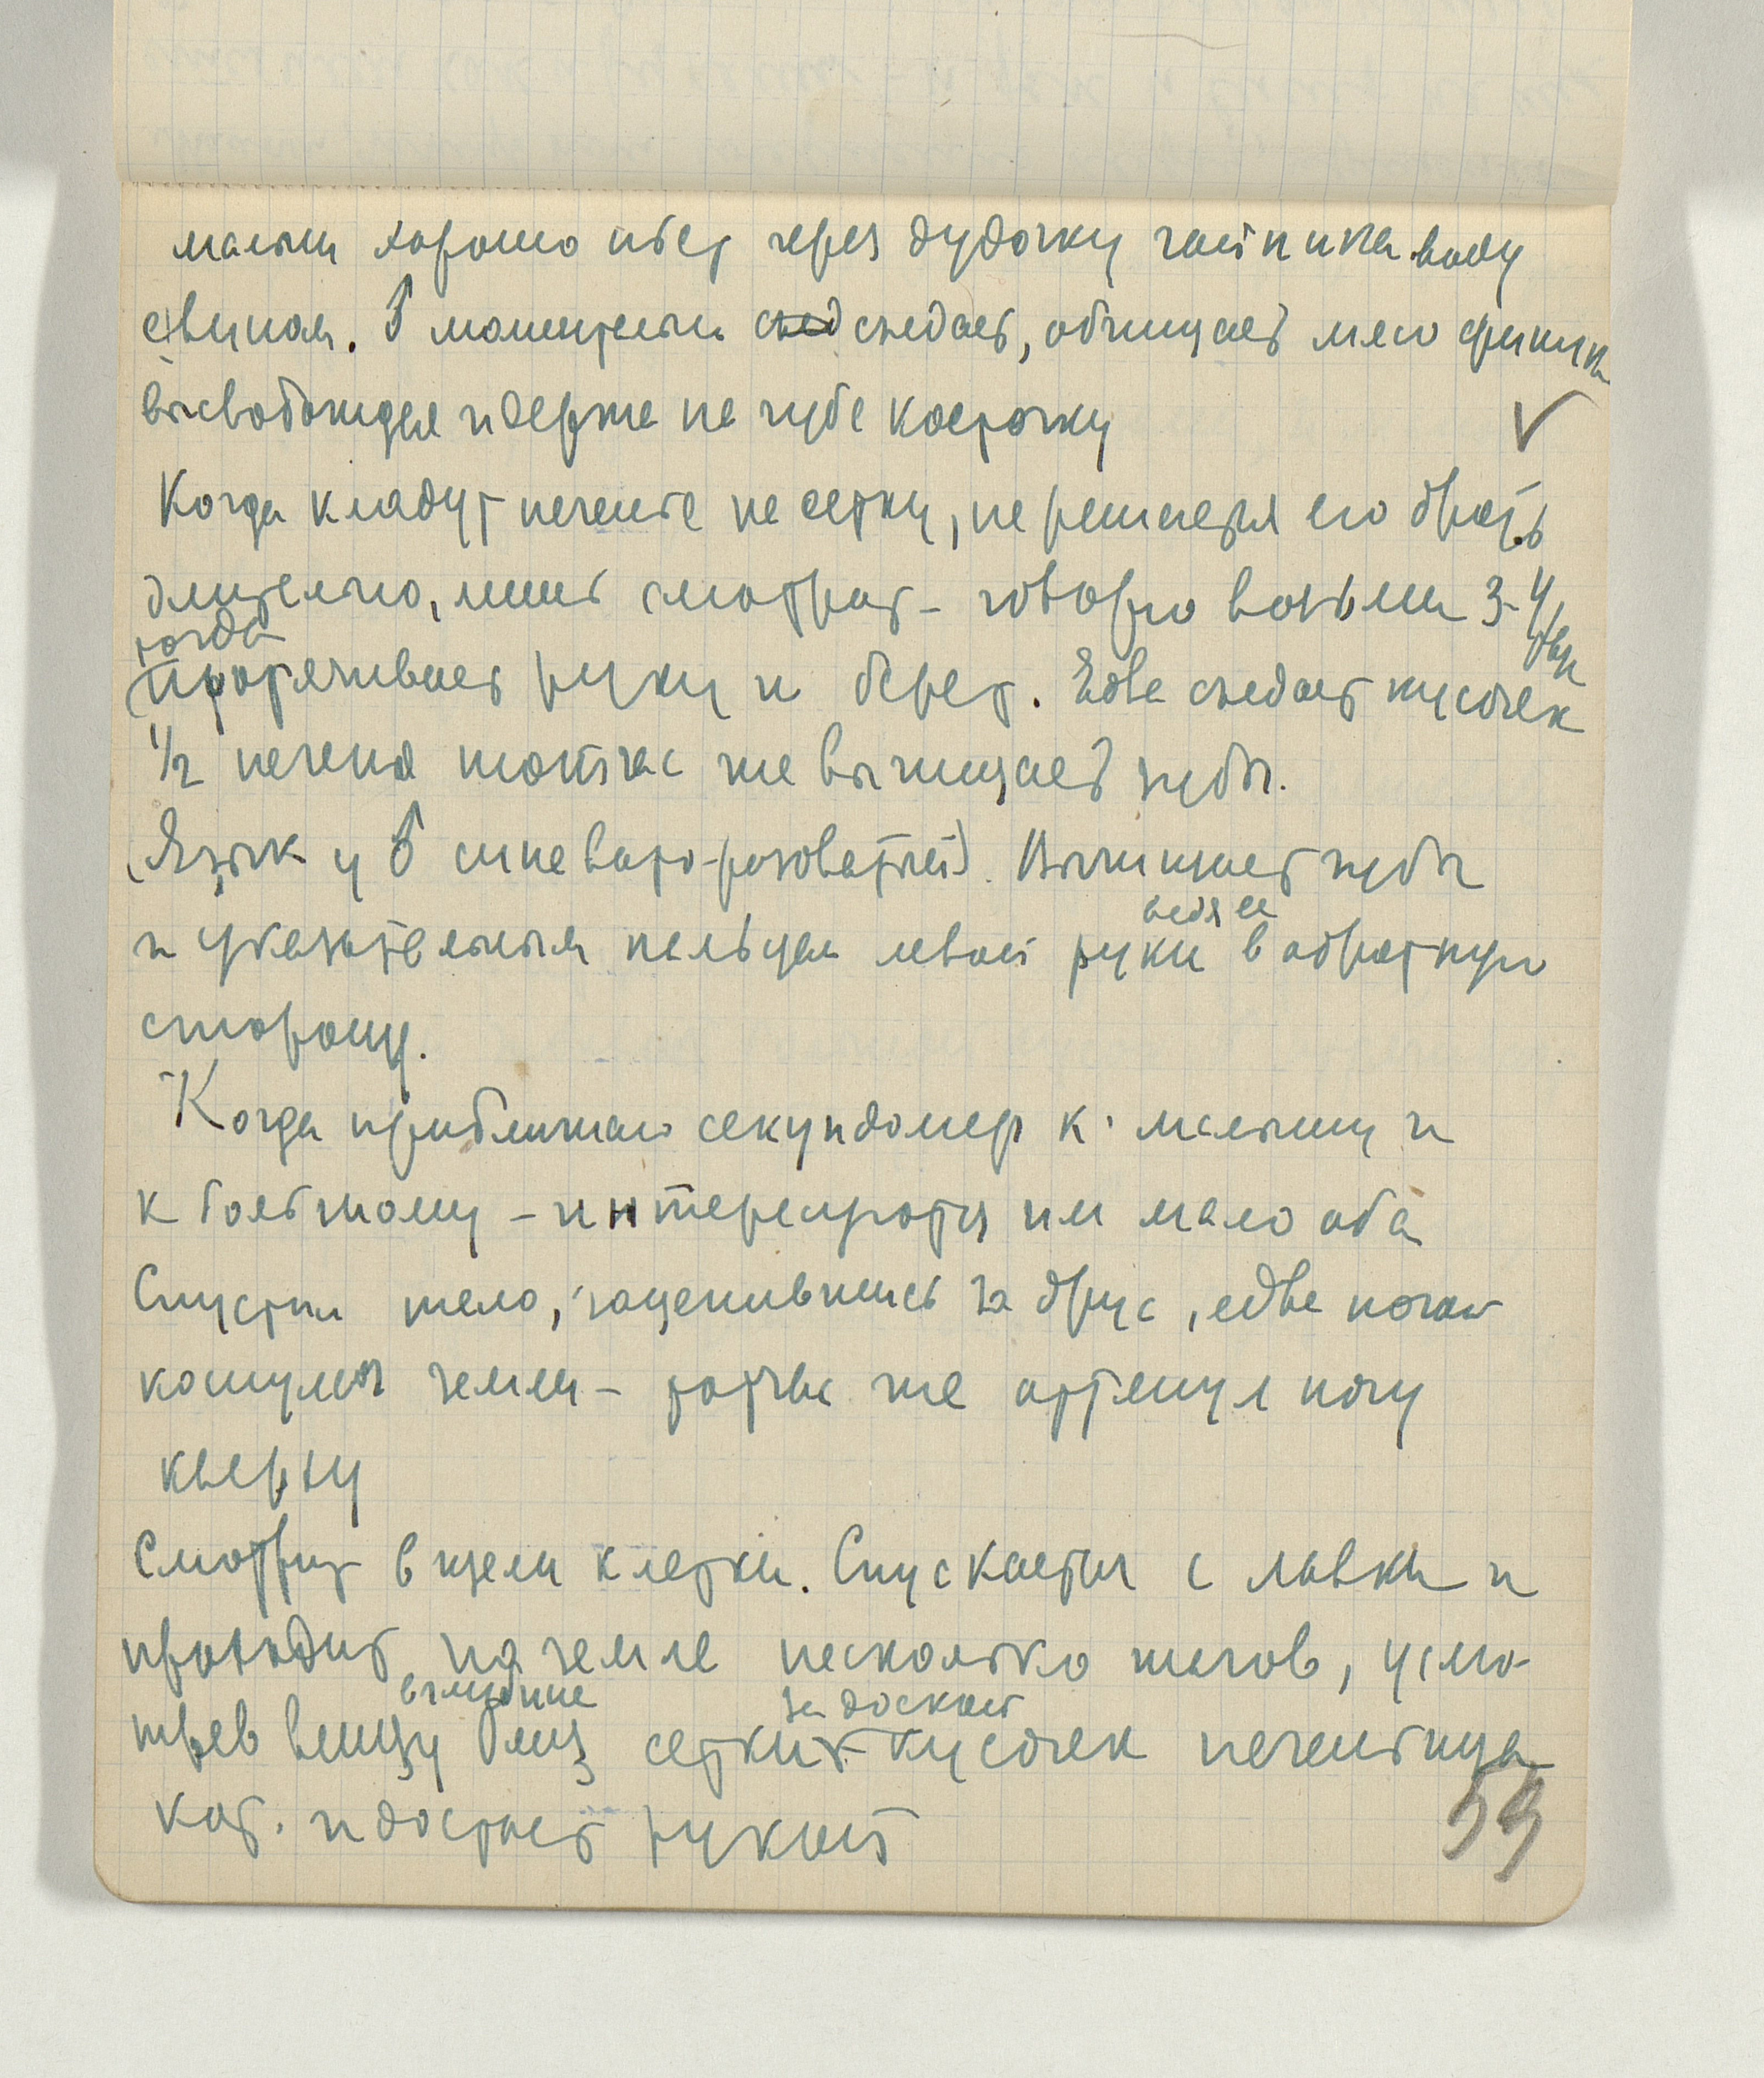 малыш хорошо пьет через дудочку чайника воду
с вином. Б моментально съед съедает, обчищает мясо финика
высвобождая и держа на губе косточку
Когда кладут печенье на сетку, не решается его брать
длительно, лишь смотрит – говорю возьми 3-4 раза
тогда
протягивает руку и берет. Едва съедает кусочек
1/2 печенья тотчас же вычищает зубы.
(Язык у Б синевато-розоватый). Вычищает зубы
ведя ее
и указательным пальцем левой руки в обратную
сторону.
Когда приближаю секундомер к малышу и
к большому – интересуются им мало оба
Спустил тело, зацепившись за брус, едва ногой
коснулся земли – тотчас же оттянул ногу
кверху
Смотрит в щели клетки. Спускается с лавки и
проходит по земле несколько шагов, усмо-
в глубине за доской
трев внизу близ сетки кусочек печеньица
кот. и достает рукой
59